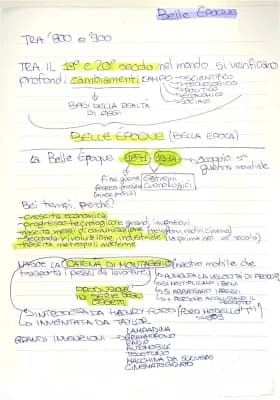 Belle Époque
TRA '800 e '900
TRA IL 19° e 20° secolo nel mondo si verificano
profondi cambiamenti CAMPO → SCIENTIFICO
→ TECNOLOGICO
→ POLITICO
→ ECONOMICO
→ SOCIALE
BASI DELLA REALTÀ
DI OGGI
BELLE EPOQUE (BELLA EPOCA)
La Belle Époque 1871 1914 → scoppio 1°
guerra mondiale
fine guerra estremi
franco prussiana cronologici
Bei tempi, perché?
- crescita economica
- progresso tecnologico e grandi invenzioni
- nascita mezzi di comunicazione (telefono, radio, cinema)
- seconda rivoluzione industriale
- nascita metropoli moderne
NASCE LA CATENA DI MONTAGGIO (nastro mobile che
trasporta i pezzi da lavorare) → AUMENTA LA VELOCITÀ DI PRODUZ.
→ SI MOLTIPLICANO I BENI
→ SI ABBASSANO I PREZZI
→ + PERSONE ACQUISTANO IL
PRODUZIONE
IN SERIE DEGLI
OGGETTI
INTRODOTTA DA HENRY FORD (FORD MODELLO "T")
INVENTATA DA TAYLOR
GRANDI INVENZIONI → LAMPADINA
GRAMMOFONO
RADIO
AUTOMOBILE
TELEFONO
MACCHINA DA SCRIVERE
CINEMATOGRAFO